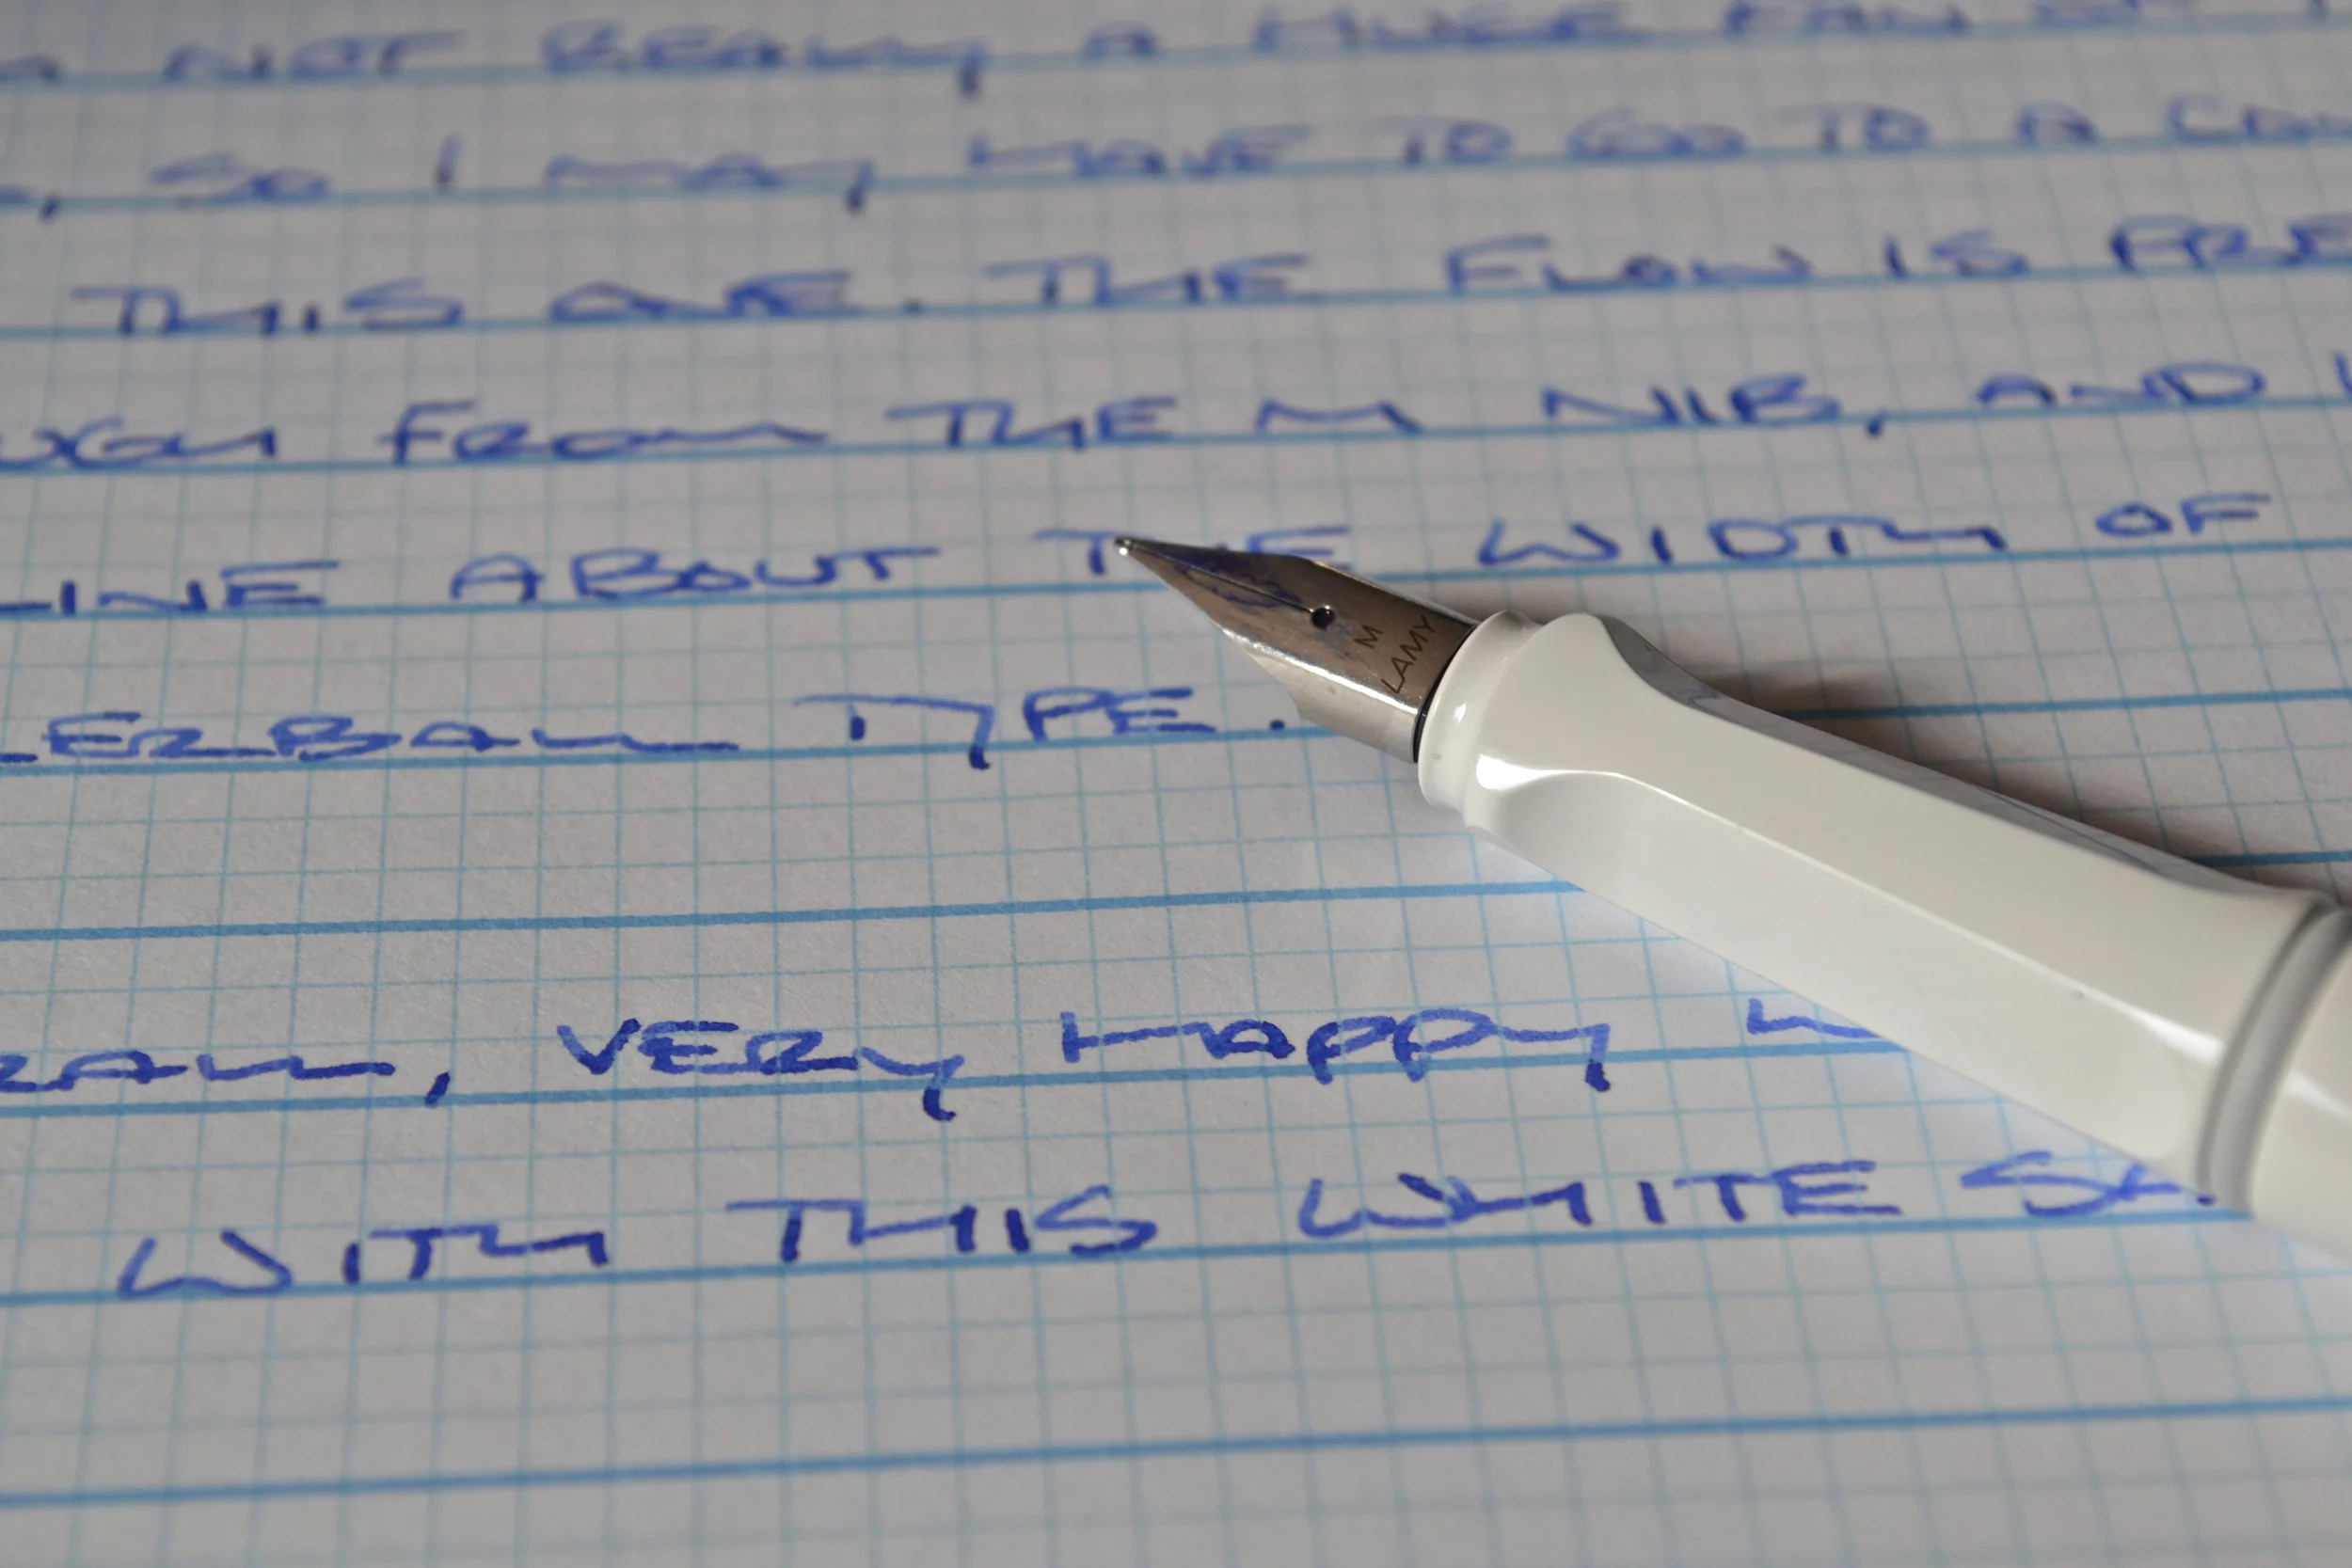 NOT REALLY A HUGE FAN OF
, SO I MAY HAVE TO GO TO A
THIS ONE. THE FLOW IS
FROM THE M NIB, AND
LINE ABOUT THE WIDTH OF
LERBALL TYPE.
RALL, VERY HAPPY
WITH THIS WHITE
M
LAMY